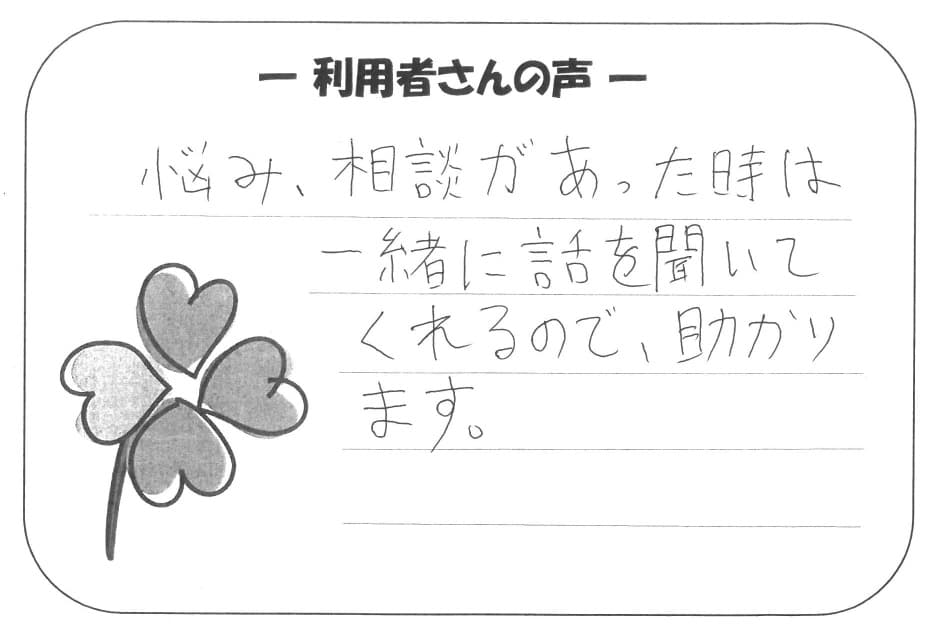 ― 利用者さんの声 ―
悩み、相談があった時は
一緒に話を聞いて
くれるので、助かり
ます。